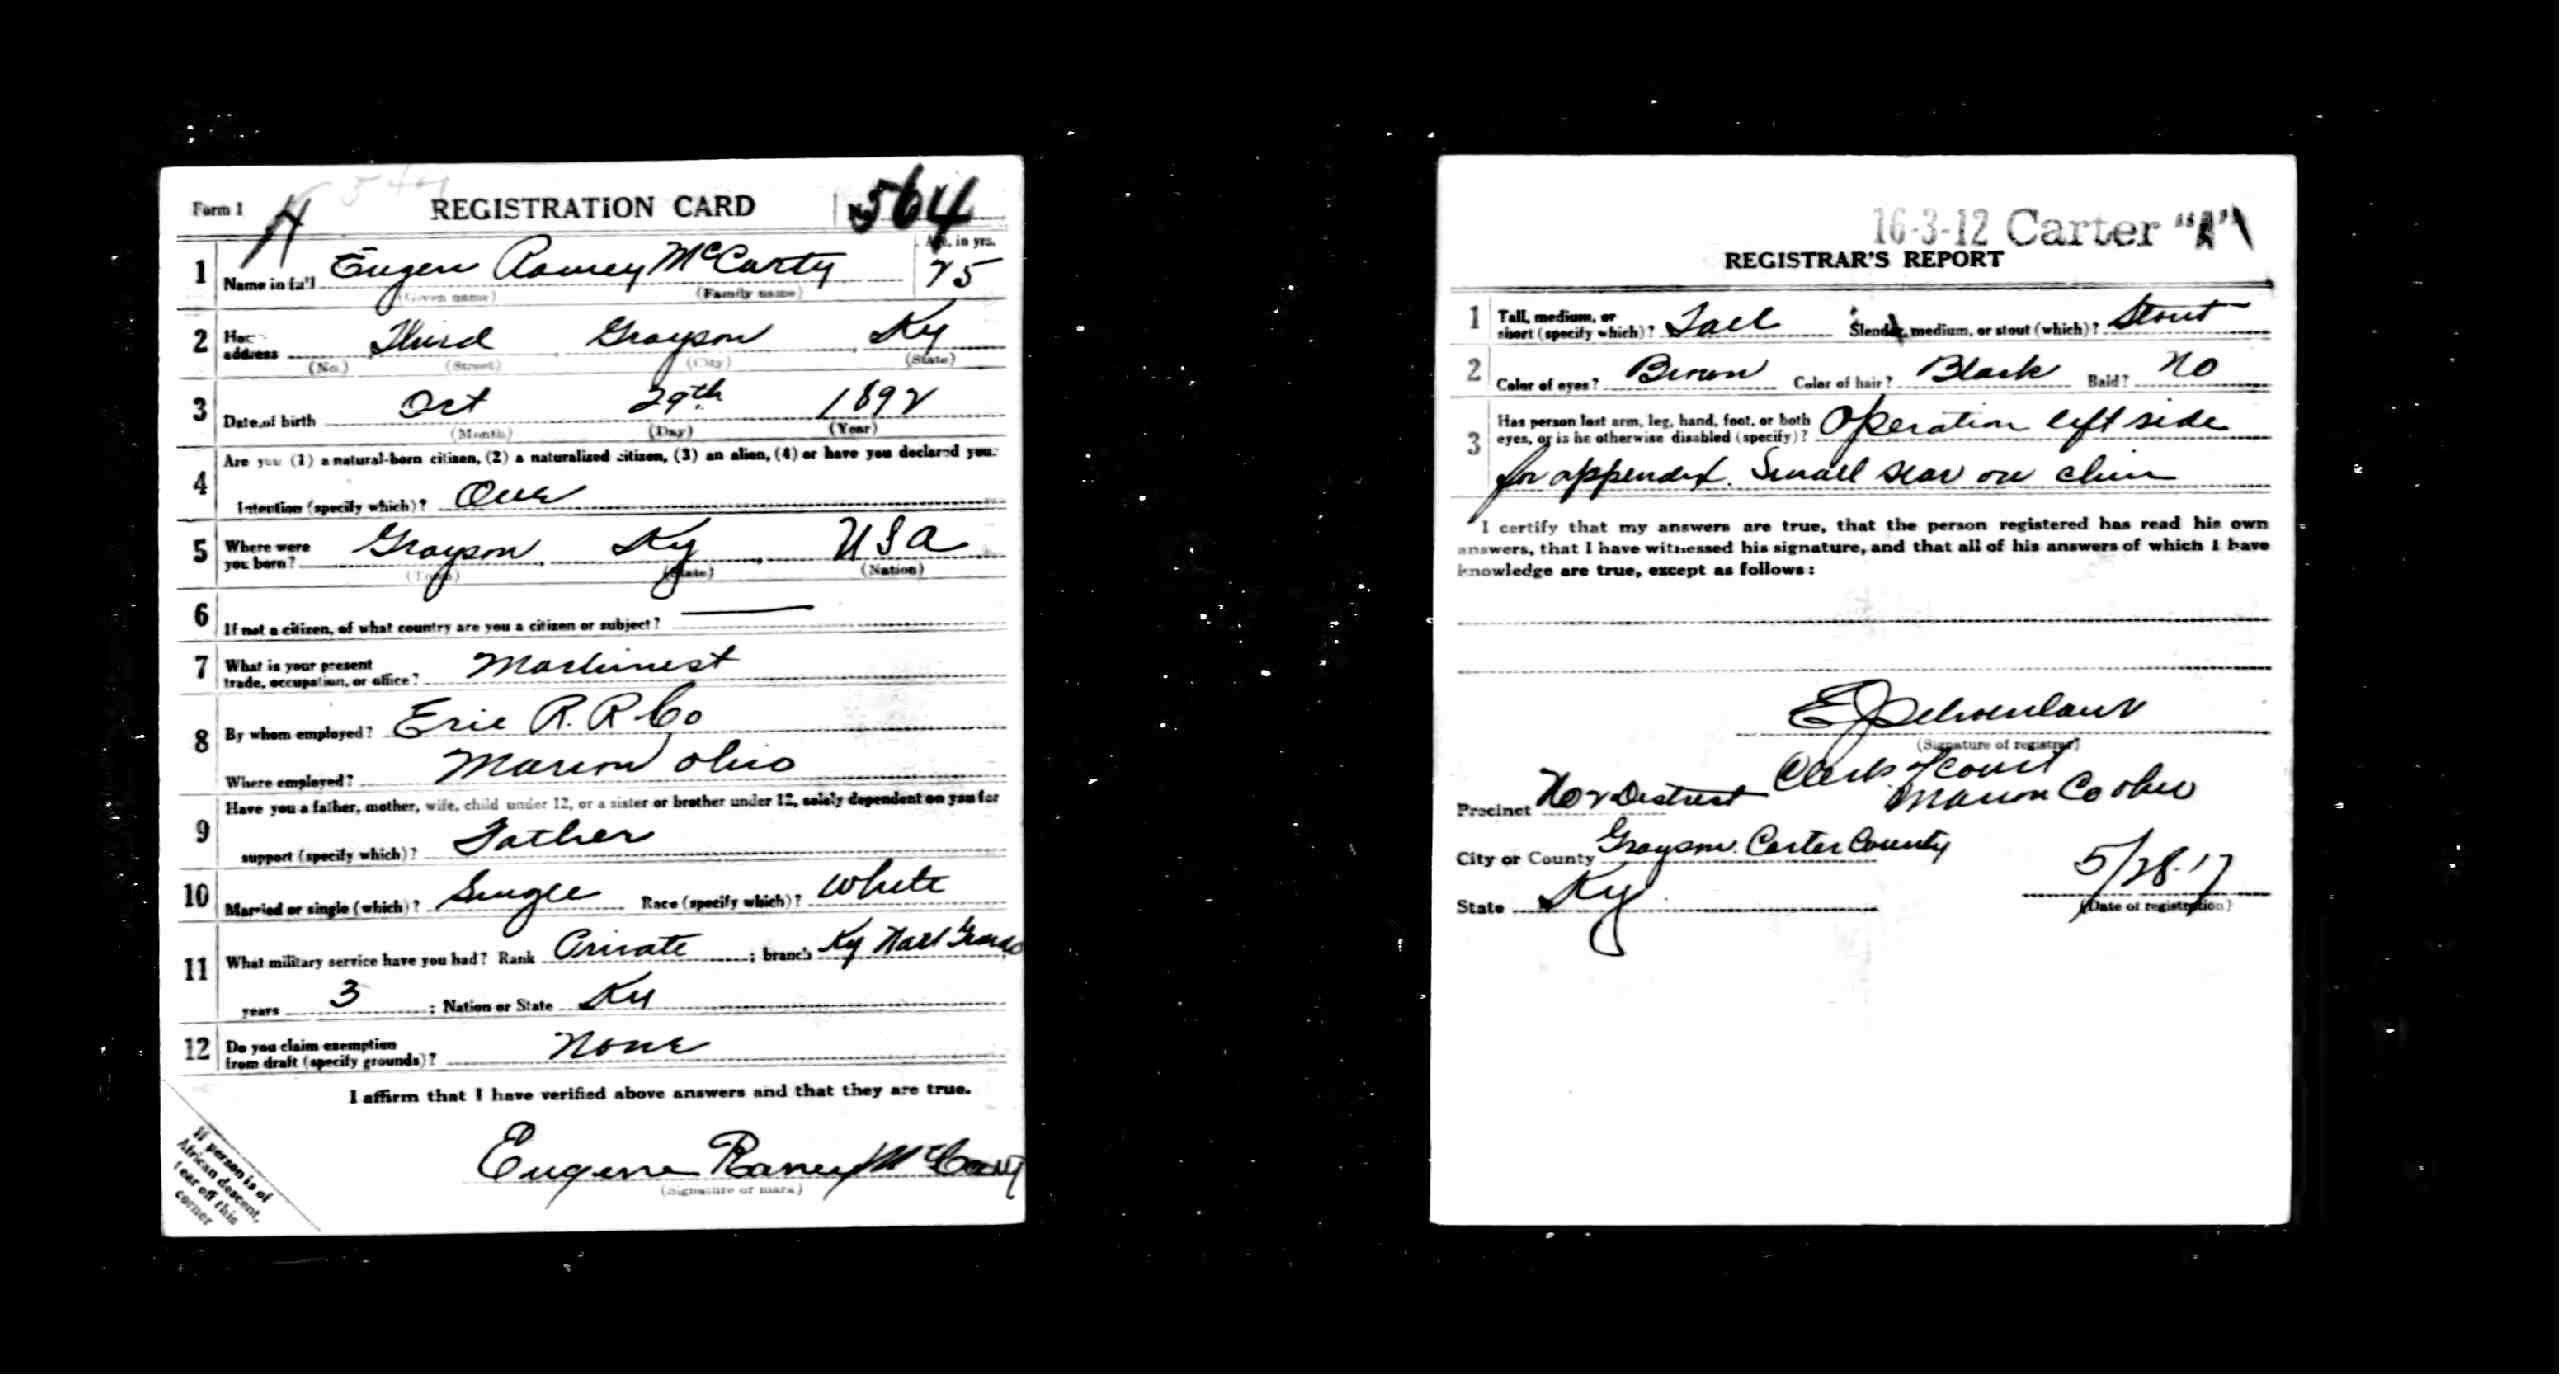 Form 1 REGISTRATION CARD No 564
1 Name in full Eugene Ramey McCarty Age, in yrs. 25
(Given name) (Family name)
2 Home address Third Grayson Ky
(No.) (Street) (City) (State)
3 Date of birth Oct 29th 1892
(Month) (Day) (Year)
4 Are you (1) a natural-born citizen, (2) a naturalized citizen, (3) an alien, (4) or have you declared your
intention (specify which)? One
5 Where were you born? Grayson Ky USA
(Town) (State) (Nation)
6 If not a citizen, of what country are you a citizen or subject? —
7 What is your present trade, occupation, or office? Machinest
8 By whom employed? Erie R. R Co
Where employed? Marion Ohio
9 Have you a father, mother, wife, child under 12, or a sister or brother under 12, solely dependent on you for
support (specify which)? Father
10 Married or single (which)? Single Race (specify which)? White
11 What military service have you had? Rank Private ; branch Ky Natl Guard
years 3 ; Nation or State Ky
12 Do you claim exemption from draft (specify grounds)? None
I affirm that I have verified above answers and that they are true.
Eugene Ramey McCarty
(Signature or mark)
If person is of
African descent,
tear off this
corner
16-3-12 Carter "A"
REGISTRAR'S REPORT
1 Tall, medium, or short (specify which)? Tall Slender, medium, or stout (which)? Stout
2 Color of eyes? Brown Color of hair? Black Bald? No
3 Has person lost arm, leg, hand, foot, or both eyes, or is he otherwise disabled (specify)? Operation left side
for appendix. Small scar on chin
I certify that my answers are true, that the person registered has read his own
answers, that I have witnessed his signature, and that all of his answers of which I have
knowledge are true, except as follows:
(Signature of registrar)
Clerk of Court
Precinct No 2 District Marion Co Ohio
City or County Grayson Carter County
State Ky 5/28-17
(Date of registration)